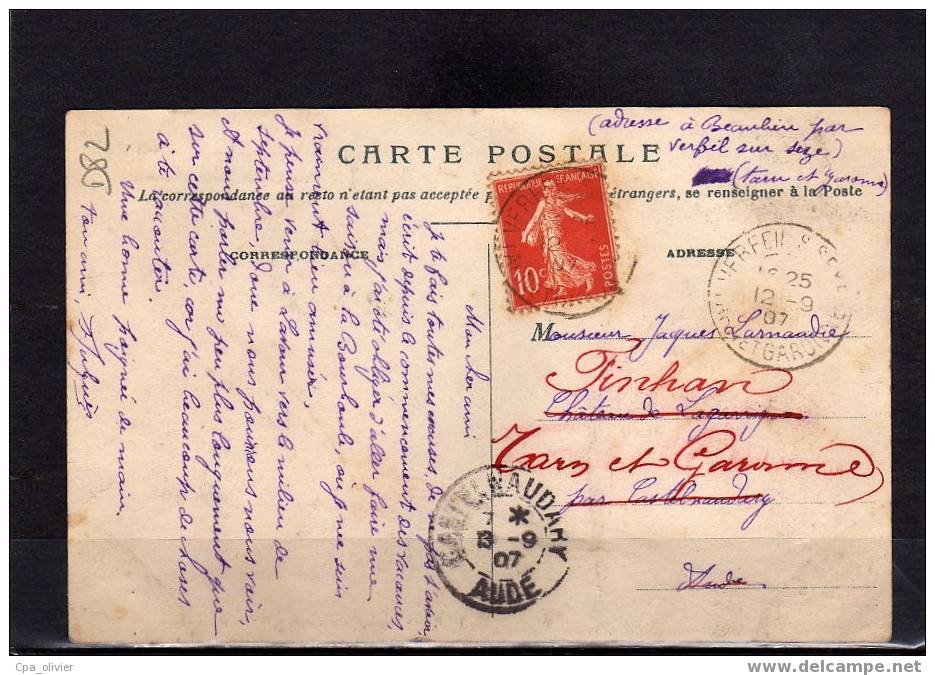 (adresse à Beaulieu par
Verfeil sur seye)
(Tarn et Garonne)
CARTE POSTALE
La correspondance au recto n'était pas acceptée par étrangers, se renseigner à la Poste
CORRESPONDANCE
ADRESSE
286
Mon cher ami
Je te fais toutes mes excuses de ne pas t'avoir
écrit depuis le commencement des vacances,
mais j'ai été obligé d'aller faire une
à la Bourboule, où je me suis
vraiment bien amusé,
Je pense venir à vers le milieu de
septembre, donc nous pourrons nous voir,
et nous parler un peu plus longuement que
sur cette carte, car j'ai beaucoup de choses
à te raconter.
Une bonne poignée de main,
ton ami,
REPUBLIQUE FRANÇAISE
10c
POSTES
VERFEIL S SEYE
16 25
12 -9
07
TARN ET GARONNE
Monsieur Jaques Larnaudie
Finhan
Château de
Tarn et Garonne
par Castelnaudary
Aude
CASTELNAUDARY
7 *
13 -9
07
AUDE
Cpa_olivier
www.delcampe.net